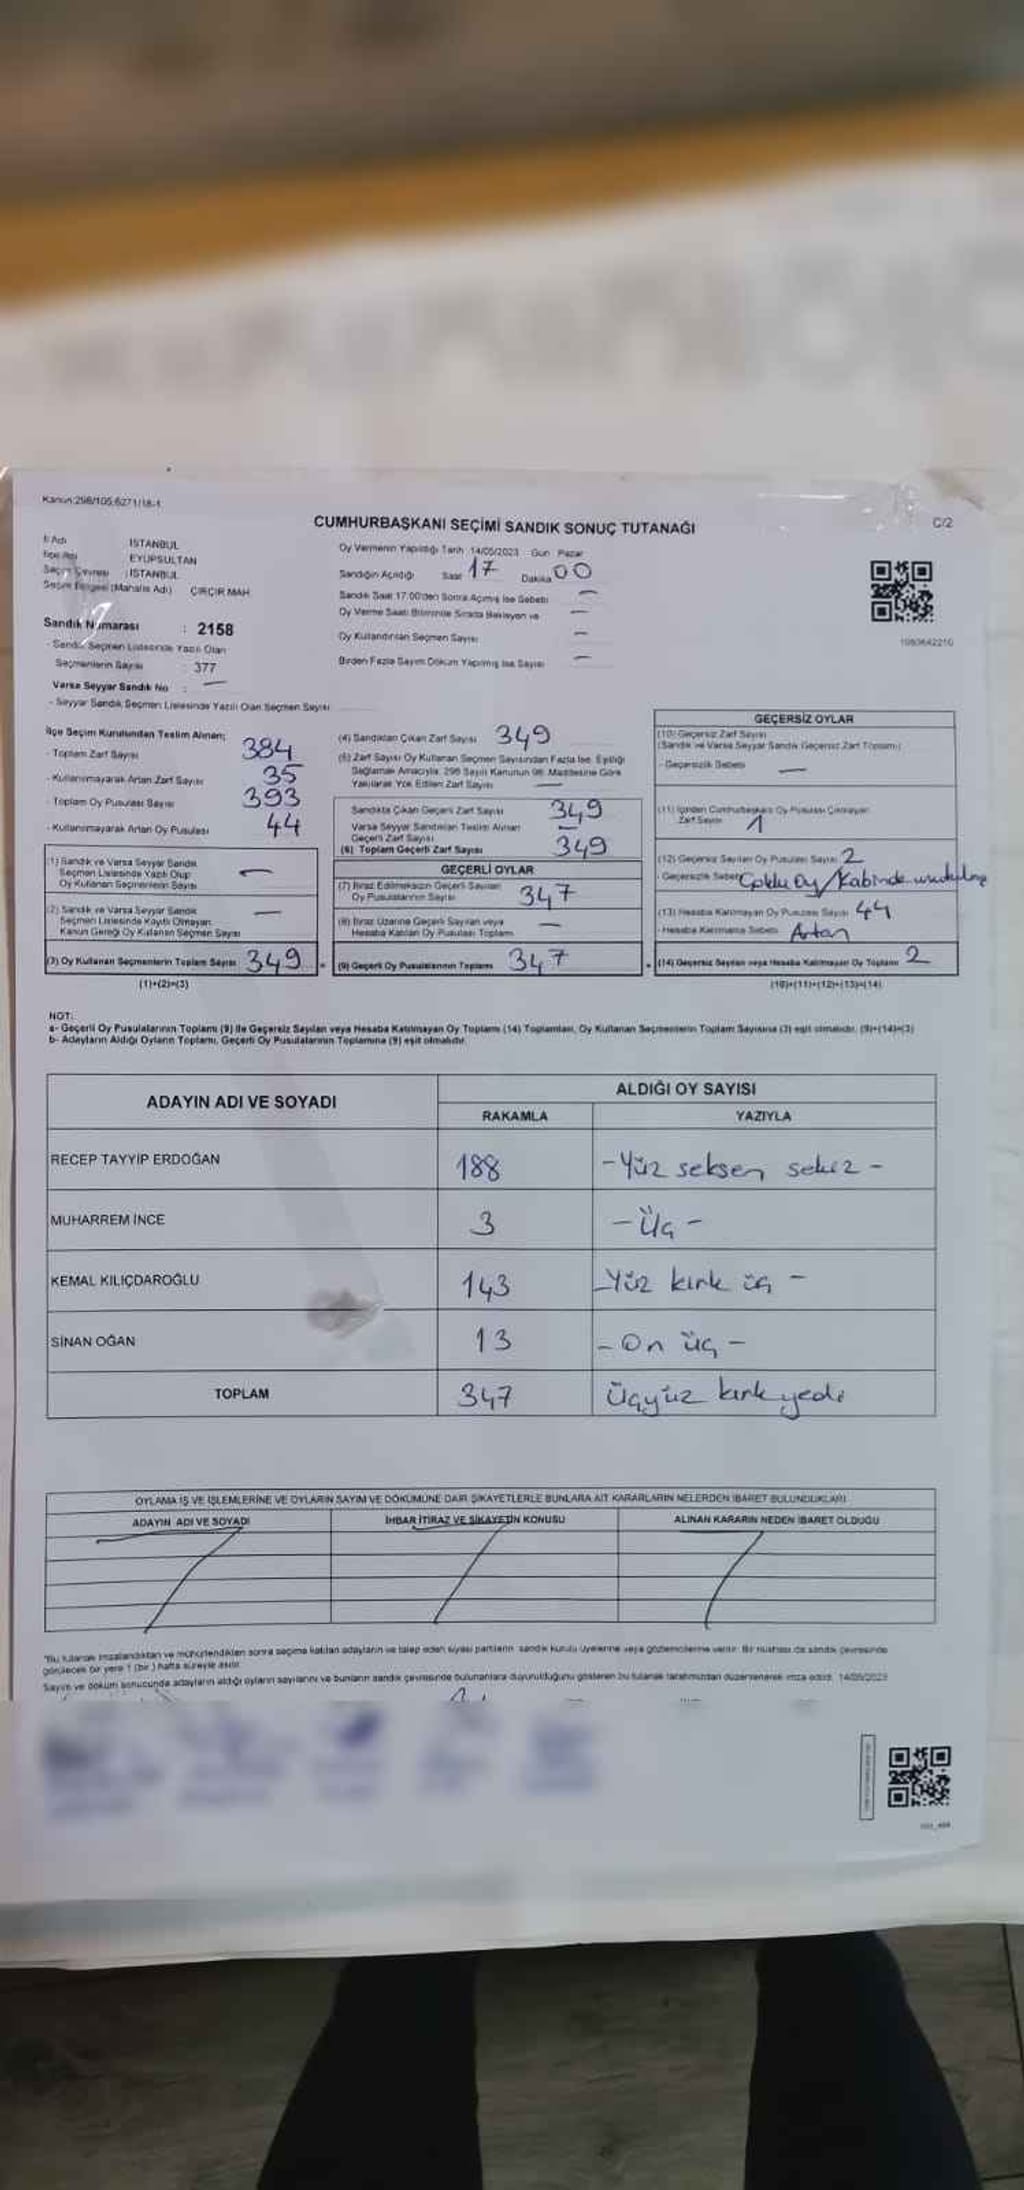 Kanun:298/105,6271/18-1
CUMHURBAŞKANI SEÇİMİ SANDIK SONUÇ TUTANAĞI
C/2
İl Adı : İSTANBUL
İlçe Adı : EYÜPSULTAN
Seçim Çevresi : İSTANBUL
Seçim Bölgesi (Mahalle Adı) : ÇIRÇIR MAH.
Sandık Numarası : 2158
- Sandık Seçmen Listesinde Yazılı Olan
Seçmenlerin Sayısı : 377
Varsa Seyyar Sandık No : —
- Seyyar Sandık Seçmen Listesinde Yazılı Olan Seçmen Sayısı
Oy Vermenin Yapıldığı Tarih 14/05/2023 Gün Pazar
Sandığın Açıldığı Saat 17 Dakika 00
Sandık Saat 17:00'den Sonra Açılmış İse Sebebi —
Oy Verme Saati Bitiminde Sırada Bekleyen ve —
Oy Kullandırılan Seçmen Sayısı —
Birden Fazla Sayım Döküm Yapılmış İse Sayısı —
1080642210
İlçe Seçim Kurulundan Teslim Alınan;
- Toplam Zarf Sayısı 384
- Kullanılmayarak Artan Zarf Sayısı 35
- Toplam Oy Pusulası Sayısı 393
- Kullanılmayarak Artan Oy Pusulası 44
(1) Sandık ve Varsa Seyyar Sandık
Seçmen Listesinde Yazılı Olup
Oy Kullanan Seçmenlerin Sayısı —
(2) Sandık ve Varsa Seyyar Sandık
Seçmen Listesinde Kayıtlı Olmayan
Kanun Gereği Oy Kullanan Seçmen Sayısı —
(3) Oy Kullanan Seçmenlerin Toplam Sayısı 349
(1)+(2)=(3)
(4) Sandıktan Çıkan Zarf Sayısı 349
(5) Zarf Sayısı Oy Kullanan Seçmen Sayısından Fazla İse, Eşitliği
Sağlamak Amacıyla, 298 Sayılı Kanunun 98. Maddesine Göre
Yakılarak Yok Edilen Zarf Sayısı —
Sandıkta Çıkan Geçerli Zarf Sayısı 349
Varsa Seyyar Sandıktan Teslim Alınan
Geçerli Zarf Sayısı —
(6) Toplam Geçerli Zarf Sayısı 349
GEÇERLİ OYLAR
(7) İtiraz Edilmeksizin Geçerli Sayılan
Oy Pusulalarının Sayısı 347
(8) İtiraz Üzerine Geçerli Sayılan veya
Hesaba Katılan Oy Pusulası Toplamı —
(9) Geçerli Oy Pusulalarının Toplamı 347
GEÇERSİZ OYLAR
(10) Geçersiz Zarf Sayısı
(Sandık ve Varsa Seyyar Sandık Geçersiz Zarf Toplamı)
- Geçersizlik Sebebi —
(11) İçinden Cumhurbaşkanı Oy Pusulası Çıkmayan
Zarf Sayısı 1
(12) Geçersiz Sayılan Oy Pusulası Sayısı 2
- Geçersizlik Sebebi Çoklu Oy/Kabinde
(13) Hesaba Katılmayan Oy Pusulası Sayısı 44
- Hesaba Katılmama Sebebi Artan
(14) Geçersiz Sayılan veya Hesaba Katılmayan Oy Toplamı 2
(10)+(11)+(12)+(13)=(14)
NOT:
a- Geçerli Oy Pusulalarının Toplamı (9) ile Geçersiz Sayılan veya Hesaba Katılmayan Oy Toplamı (14) Toplamları, Oy Kullanan Seçmenlerin Toplam Sayısına (3) eşit olmalıdır. (9)+(14)=(3)
b- Adayların Aldığı Oyların Toplamı, Geçerli Oy Pusulalarının Toplamına (9) eşit olmalıdır.
ADAYIN ADI VE SOYADI
ALDIĞI OY SAYISI
RAKAMLA YAZIYLA
RECEP TAYYİP ERDOĞAN 188 -Yüz seksen sekiz-
MUHARREM İNCE 3 -Üç-
KEMAL KILIÇDAROĞLU 143 -Yüz kırk üç-
SİNAN OĞAN 13 -On üç-
TOPLAM 347 Üçyüz kırk yedi
OYLAMA İŞ VE İŞLEMLERİNE VE OYLARIN SAYIM VE DÖKÜMÜNE DAİR ŞİKAYETLERLE BUNLARA AİT KARARLARIN NELERDEN İBARET BULUNDUKLARI
ADAYIN ADI VE SOYADI İHBAR İTİRAZ VE ŞİKAYETİN KONUSU ALINAN KARARIN NEDEN İBARET OLDUĞU
*Bu tutanak imzalandıktan ve mühürlendikten sonra seçime katılan adayların ve talep eden siyasi partilerin sandık kurulu üyelerine veya gözlemcilerine verilir. Bir nüshası da sandık çevresinde
görülecek bir yere 1 (bir) hafta süreyle asılır.
Sayım ve döküm sonucunda adayların aldığı oyların sayılarını ve bunların sandık çevresinde bulunanlara duyurulduğunu gösteren bu tutanak tarafımızdan düzenlenerek imza edildi. 14/05/2023